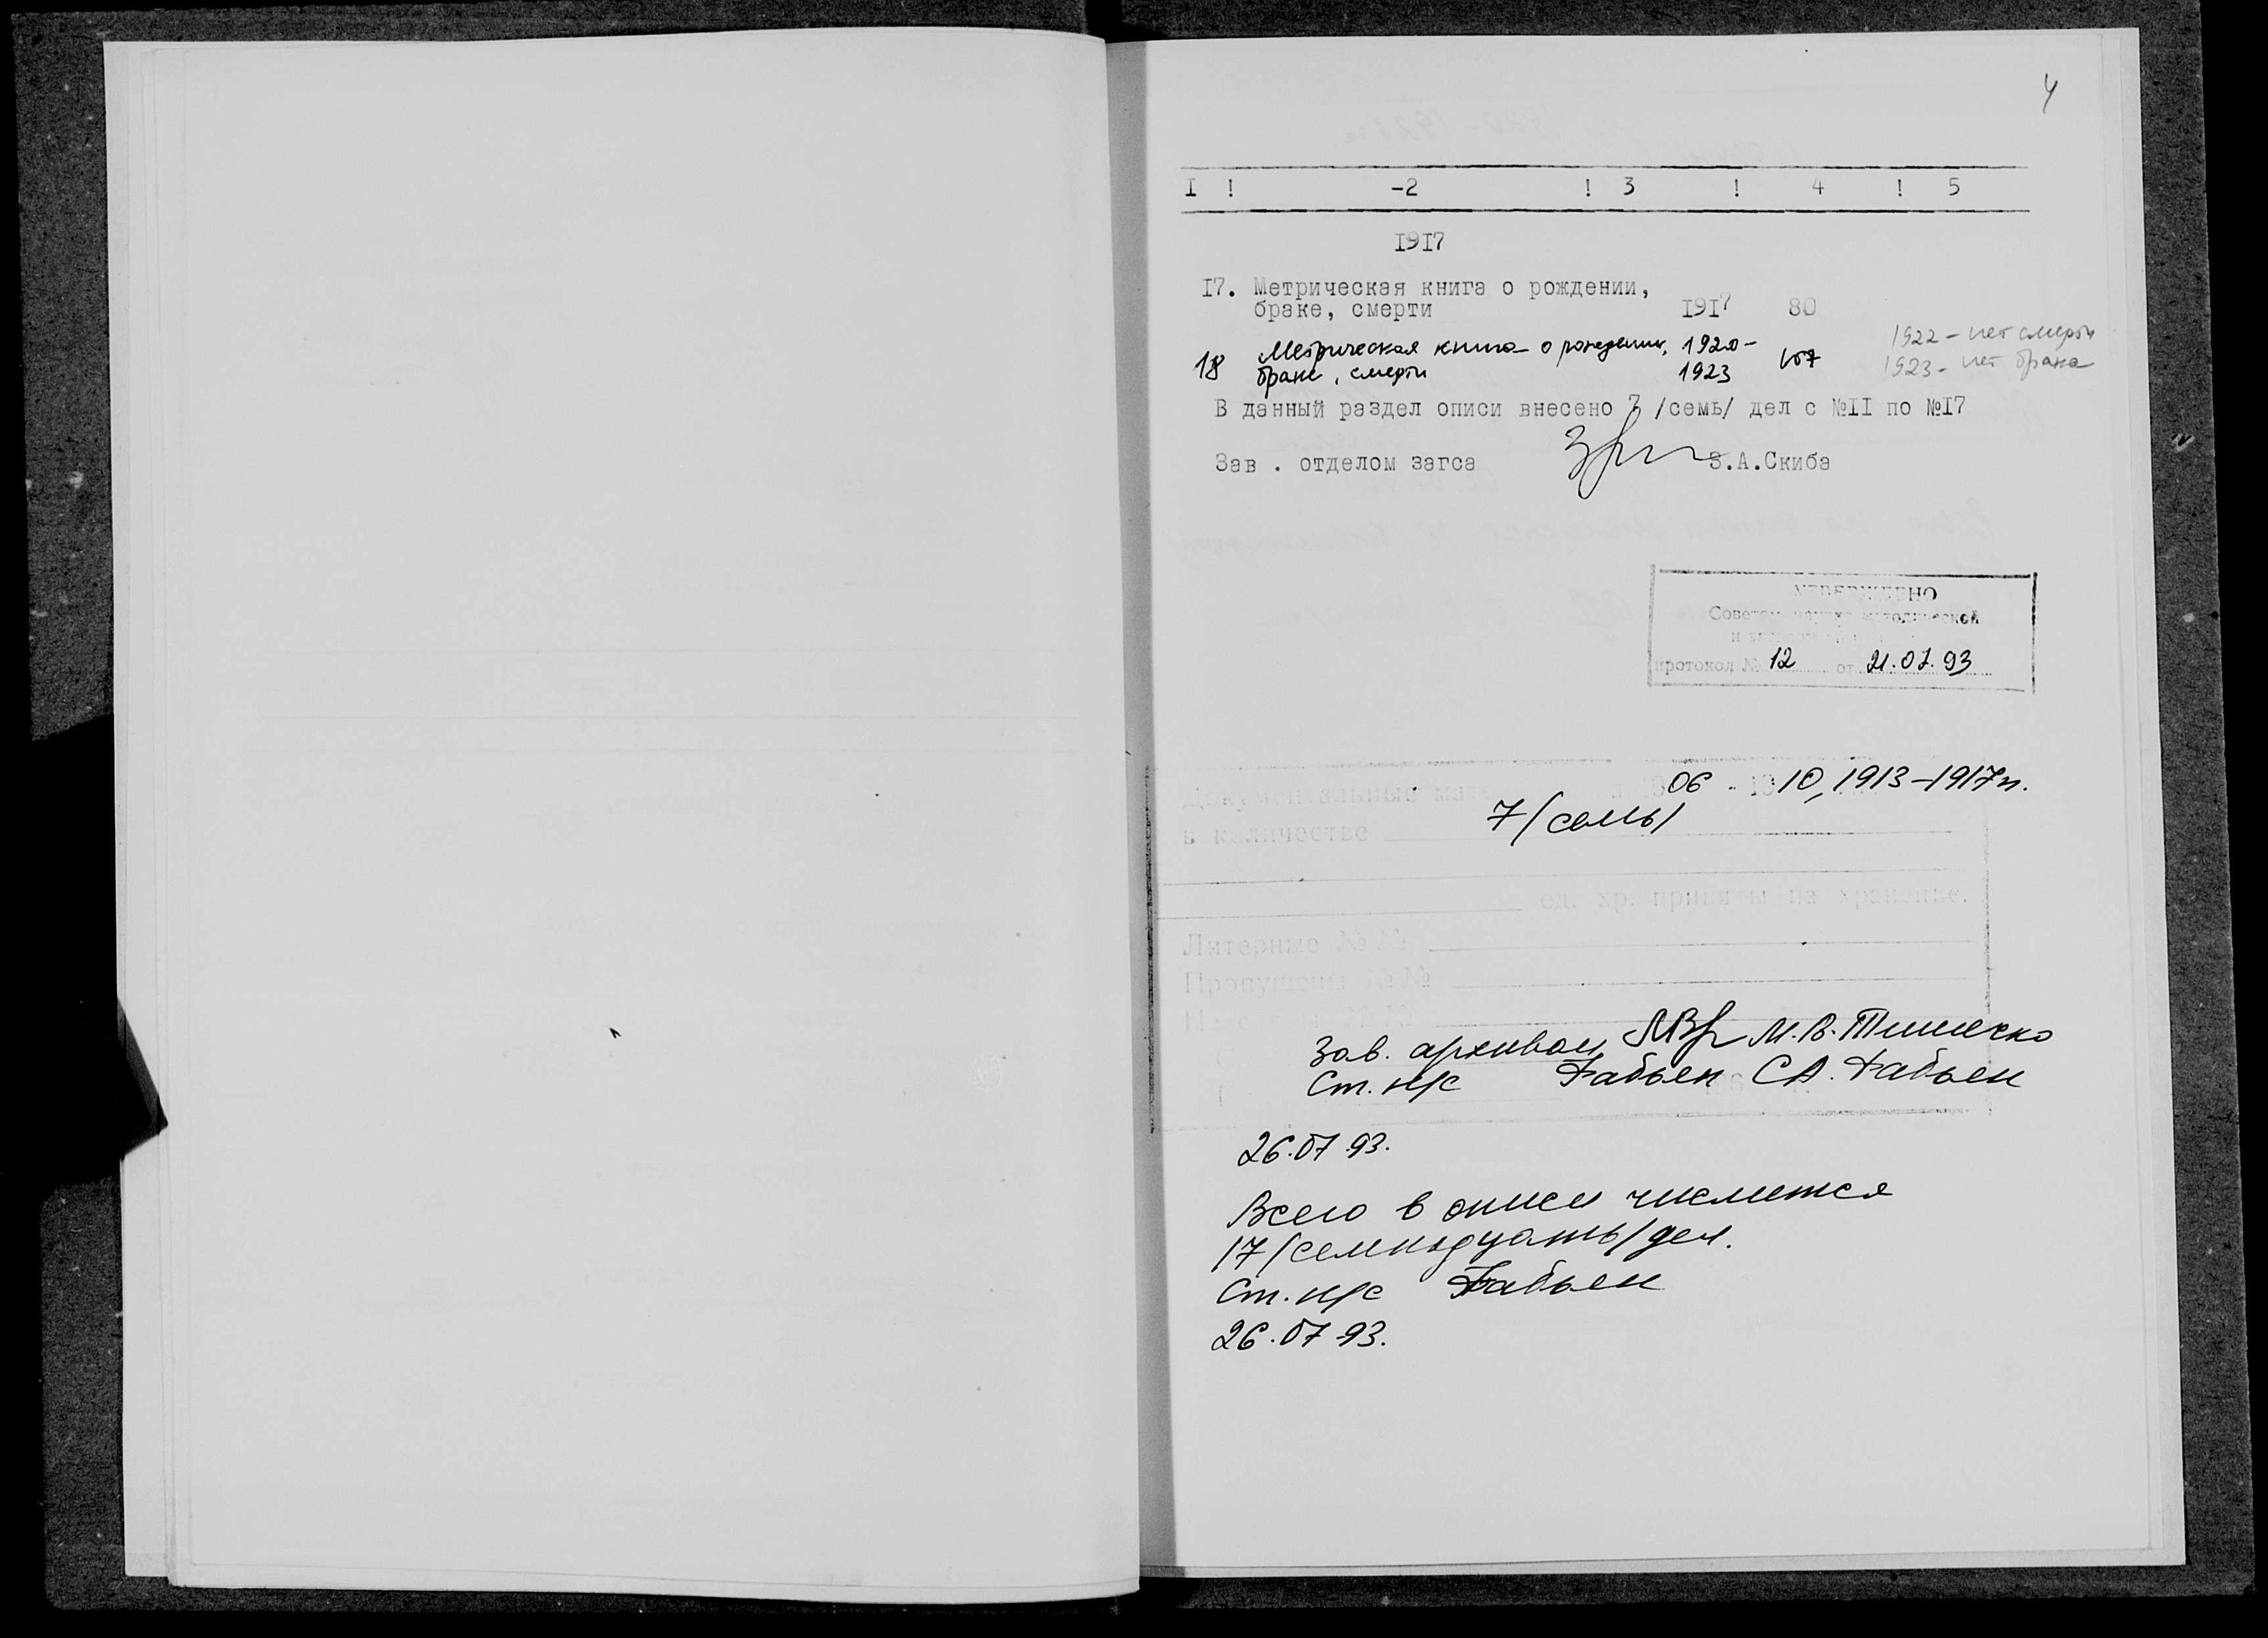 4
I ! -2 ! 3 ! 4 ! 5
1917
I7. Метрическая книга о рождении,
браке, смерти 1917 80
18 Метрическая книга о рождении, 1920-
браке, смерти 1923 107
1922 - нет смерти
1923 - нет брака
В данный раздел описи внесено 7 /семь/ дел с №II по №I7
Зав . отделом загса З.А.Скиба
УТВЕРЖДЕНО
Советом методической
и
протокол № 12 от 21.07.93
Документальные 06 - 10, 1913-1917гг.
в количестве 7/семь/
ед. хр. приняты на хранение.
Литерные №№
Пропущены №№
Зав. архивом М.В.
Ст. н/с Бабьен С.А. Бабьен
26.07.93.
Всего в описи числится
17/семнадцать/дел.
Ст. н/с Бабьен
26.07.93.